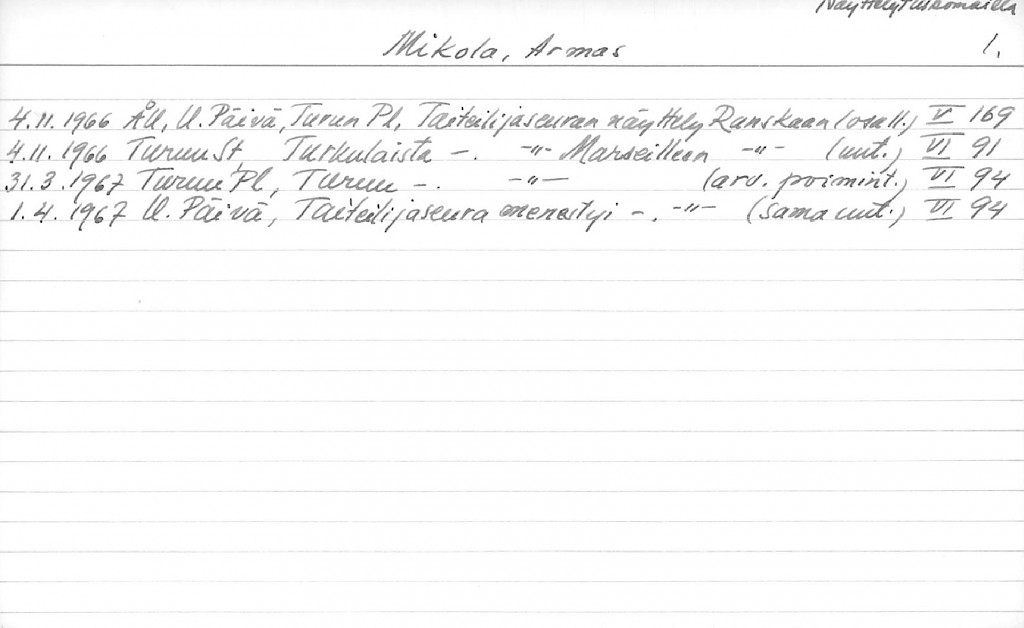 Näyttelyt ulkomailla
Mikola, Armas 1.
4.11.1966 ÅU, U. Päivä, Turun Pl, Taiteilijaseuran näyttely Ranskaan (osall.) V 169
4.11.1966 Turun St, Turkulaista -. -"- Marseilleen -"- (uut.) VI 91
31.3.1967 Turun Pl, Turun -. -"- (arv. poimint.) VI 94
1.4.1967 U. Päivä, Taiteilijaseura menestyi -. -"- (sama uut.) VI 94